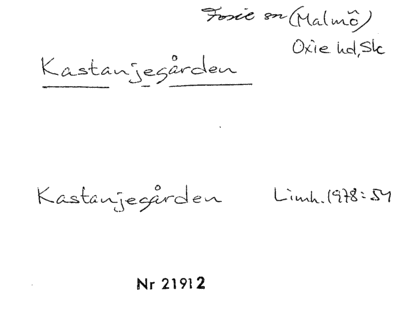 Fosie sn (Malmö)
Oxie hd, Sk
Kastanjegården
Kastanjegården Limh. 1978:54
Nr 21912